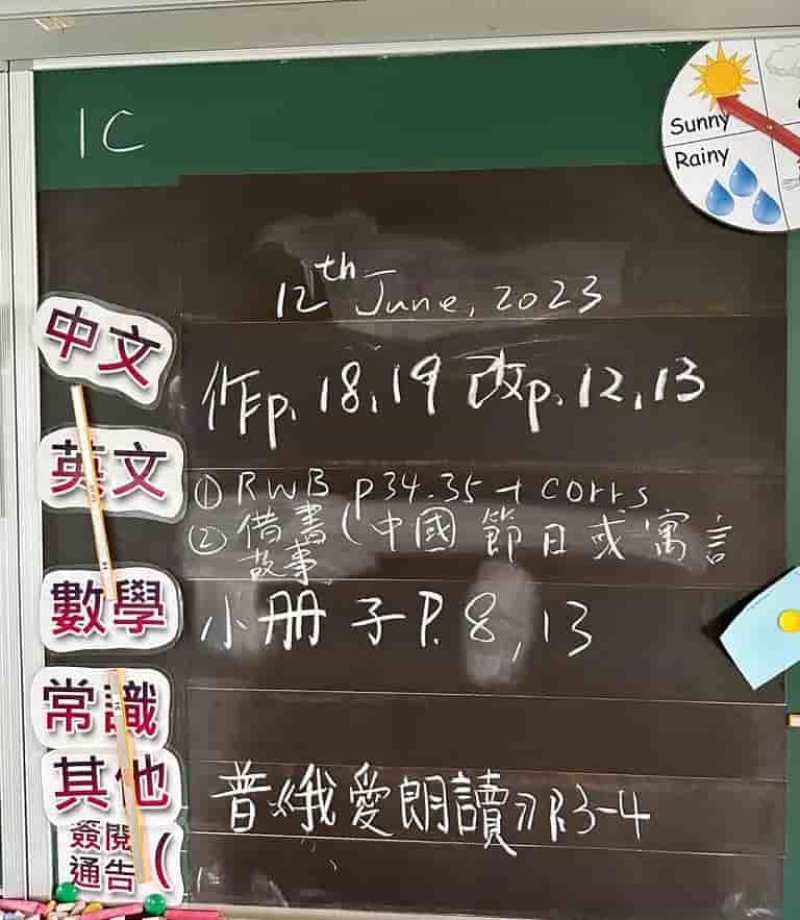 1C
Sunny
Rainy
12th June, 2023
中文
作p. 18,19 改p. 12,13
英文
① RWB p34.35 + corrs
② 借書(中國節日或寓言
故事
數學
小册子P. 8,13
常識
其他
普《我愛朗讀》P.3-4
簽閱
通告(